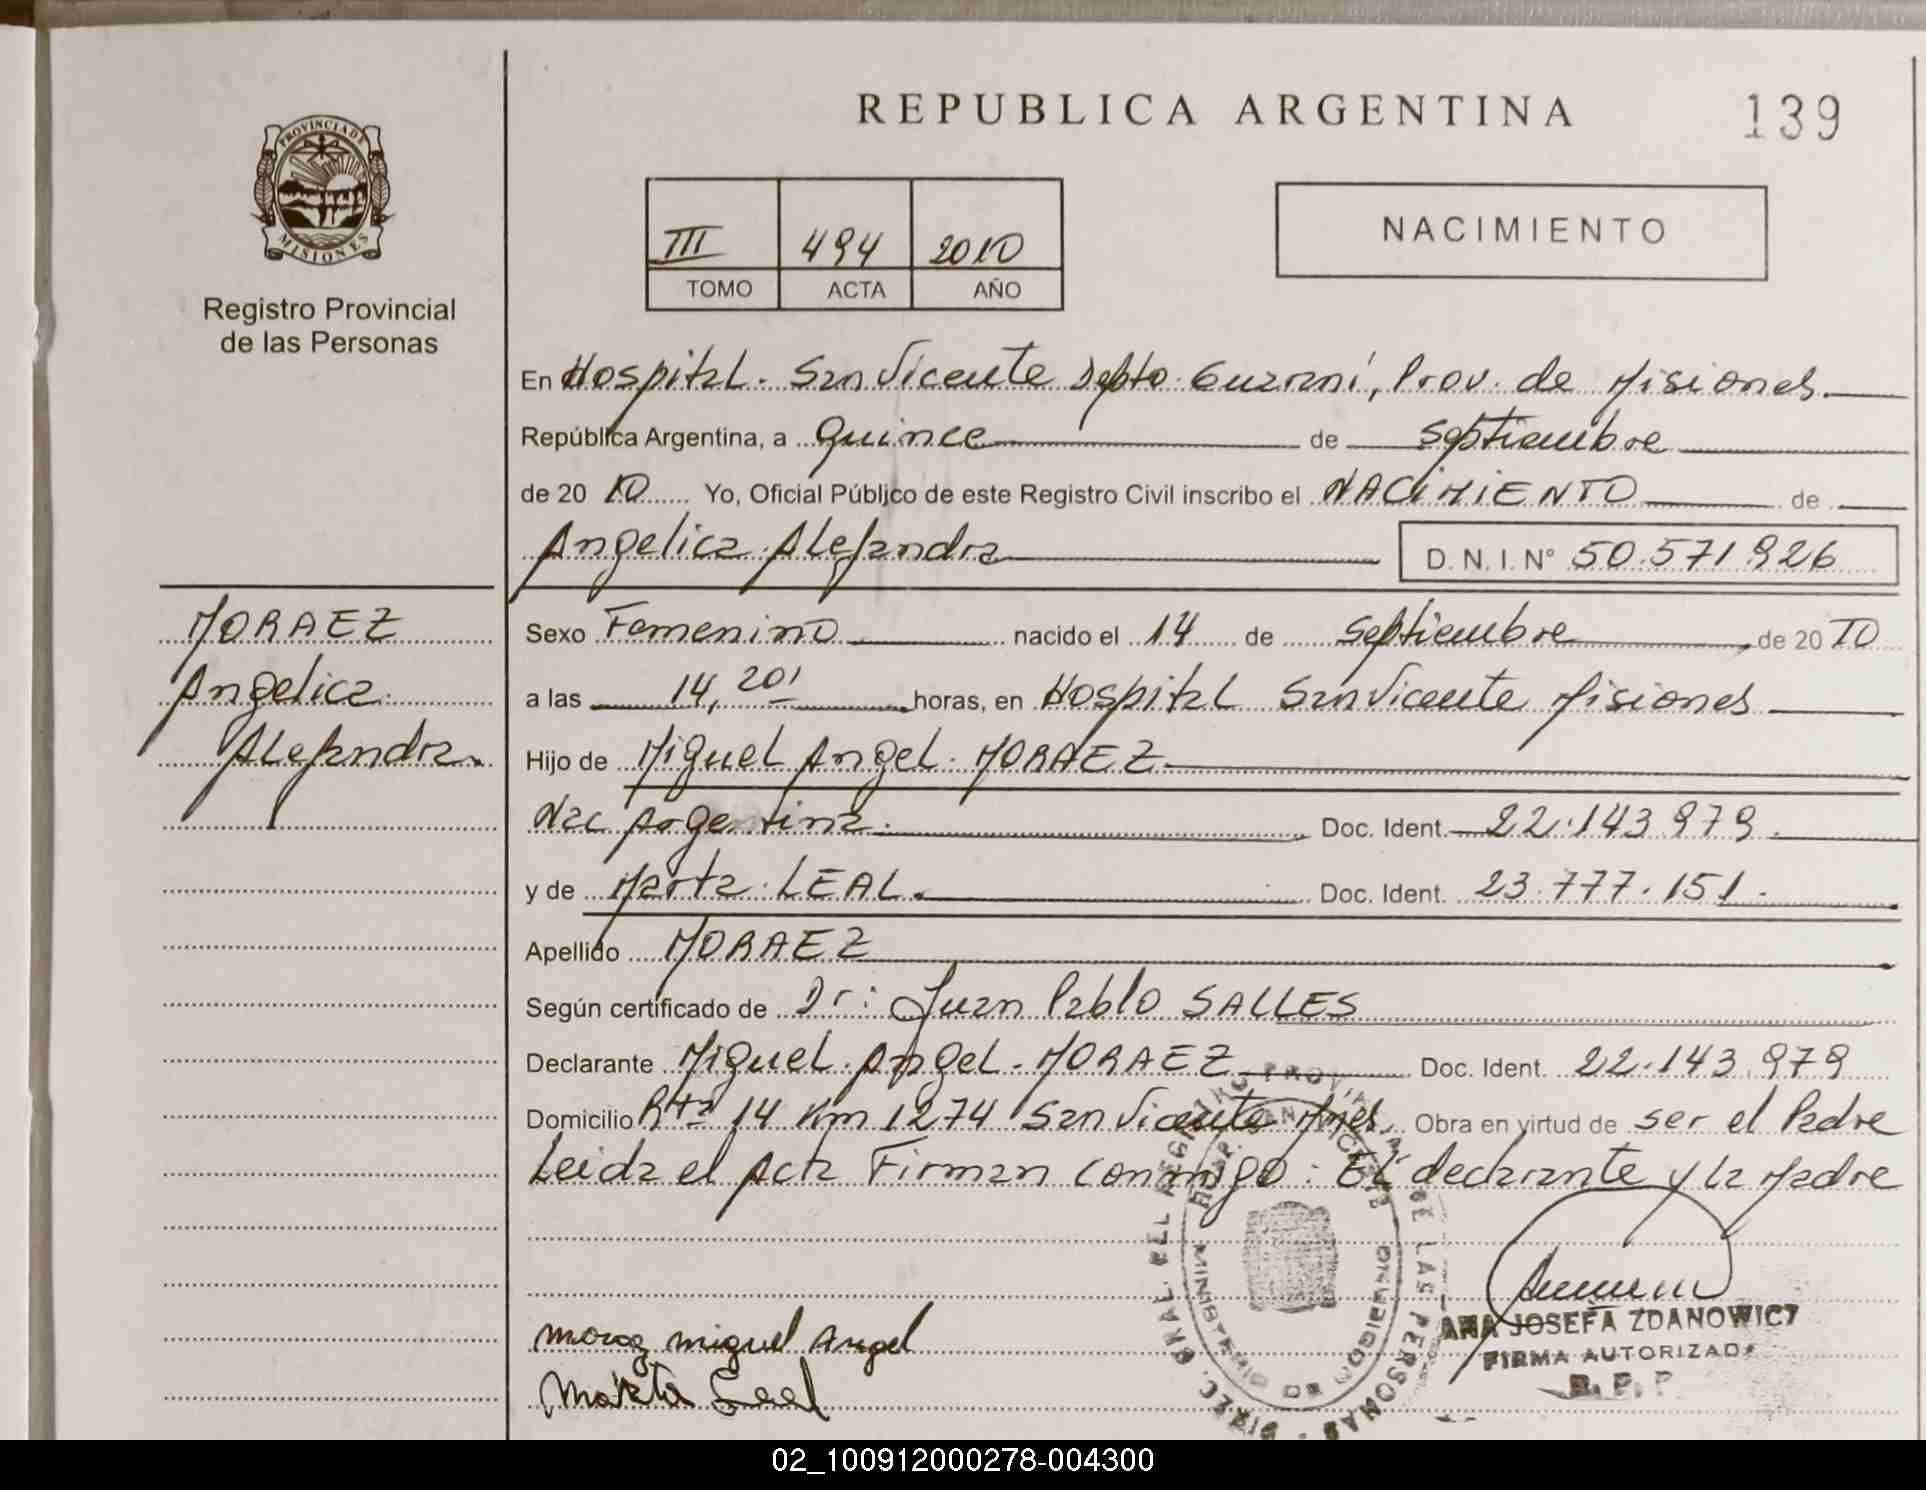 REPUBLICA ARGENTINA
139
PROVINCIA DE
MISIONES
Registro Provincial
de las Personas
III 494 2010
TOMO ACTA AÑO
NACIMIENTO
En Hospital. San Vicente Depto. Guaraní, Prov. de Misiones.
República Argentina, a Quince de Septiembre
de 20 10 Yo, Oficial Público de este Registro Civil inscribo el NACIMIENTO de
Angelica Alejandra D.N.I. N° 50.571.926
MORAEZ
Angelica
Alejandra.
Sexo Femenino nacido el 14 de Septiembre de 20 10
a las 14,20' horas, en Hospital San Vicente Misiones
Hijo de Miguel Angel. MORAEZ
Nac Argentina. Doc. Ident. 22.143.979.
y de Marta. LEAL. Doc. Ident. 23.777.151.
Apellido MORAEZ
Según certificado de Dr: Juan Pablo SALLES
Declarante Miguel. Angel. MORAEZ Doc. Ident. 22.143.979
Domicilio Rta 14 Km 1274 San Vicente Mnes. Obra en virtud de ser el Padre
Leida el Acta Firman Conmigo: El declarante y la Madre
Moraez miguel Angel
Marta Leal
ANA JOSEFA ZDANOWICZ
FIRMA AUTORIZADA
R. P. P.
02_100912000278-004300